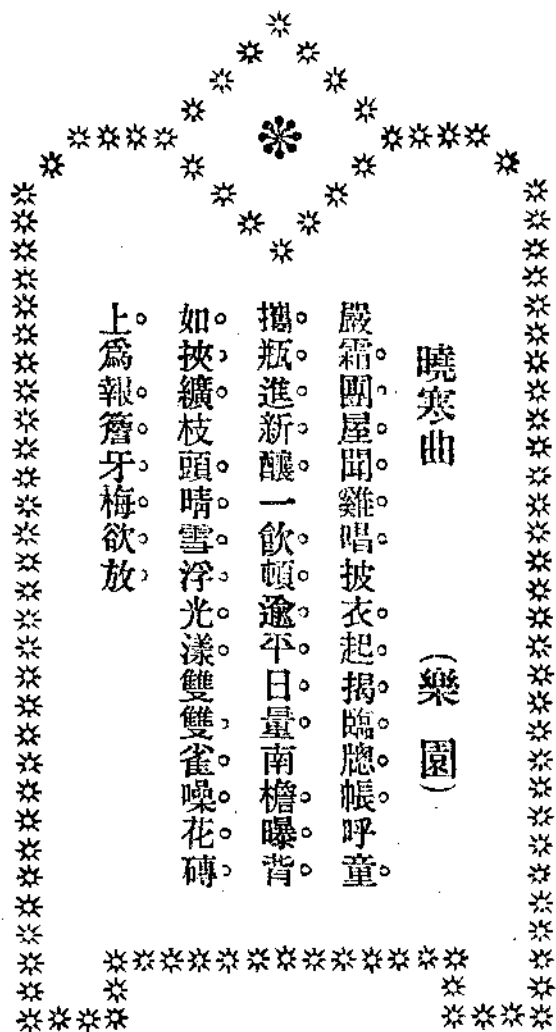 曉寒曲　（樂園）
嚴霜團屋聞雞唱披衣起揭臨牕帳呼童
攜瓶進新釀一飲頓逾平日量南檐曝背
如挾纊枝頭晴雪浮光漾雙雙雀噪花磚
上爲報簷牙梅欲放